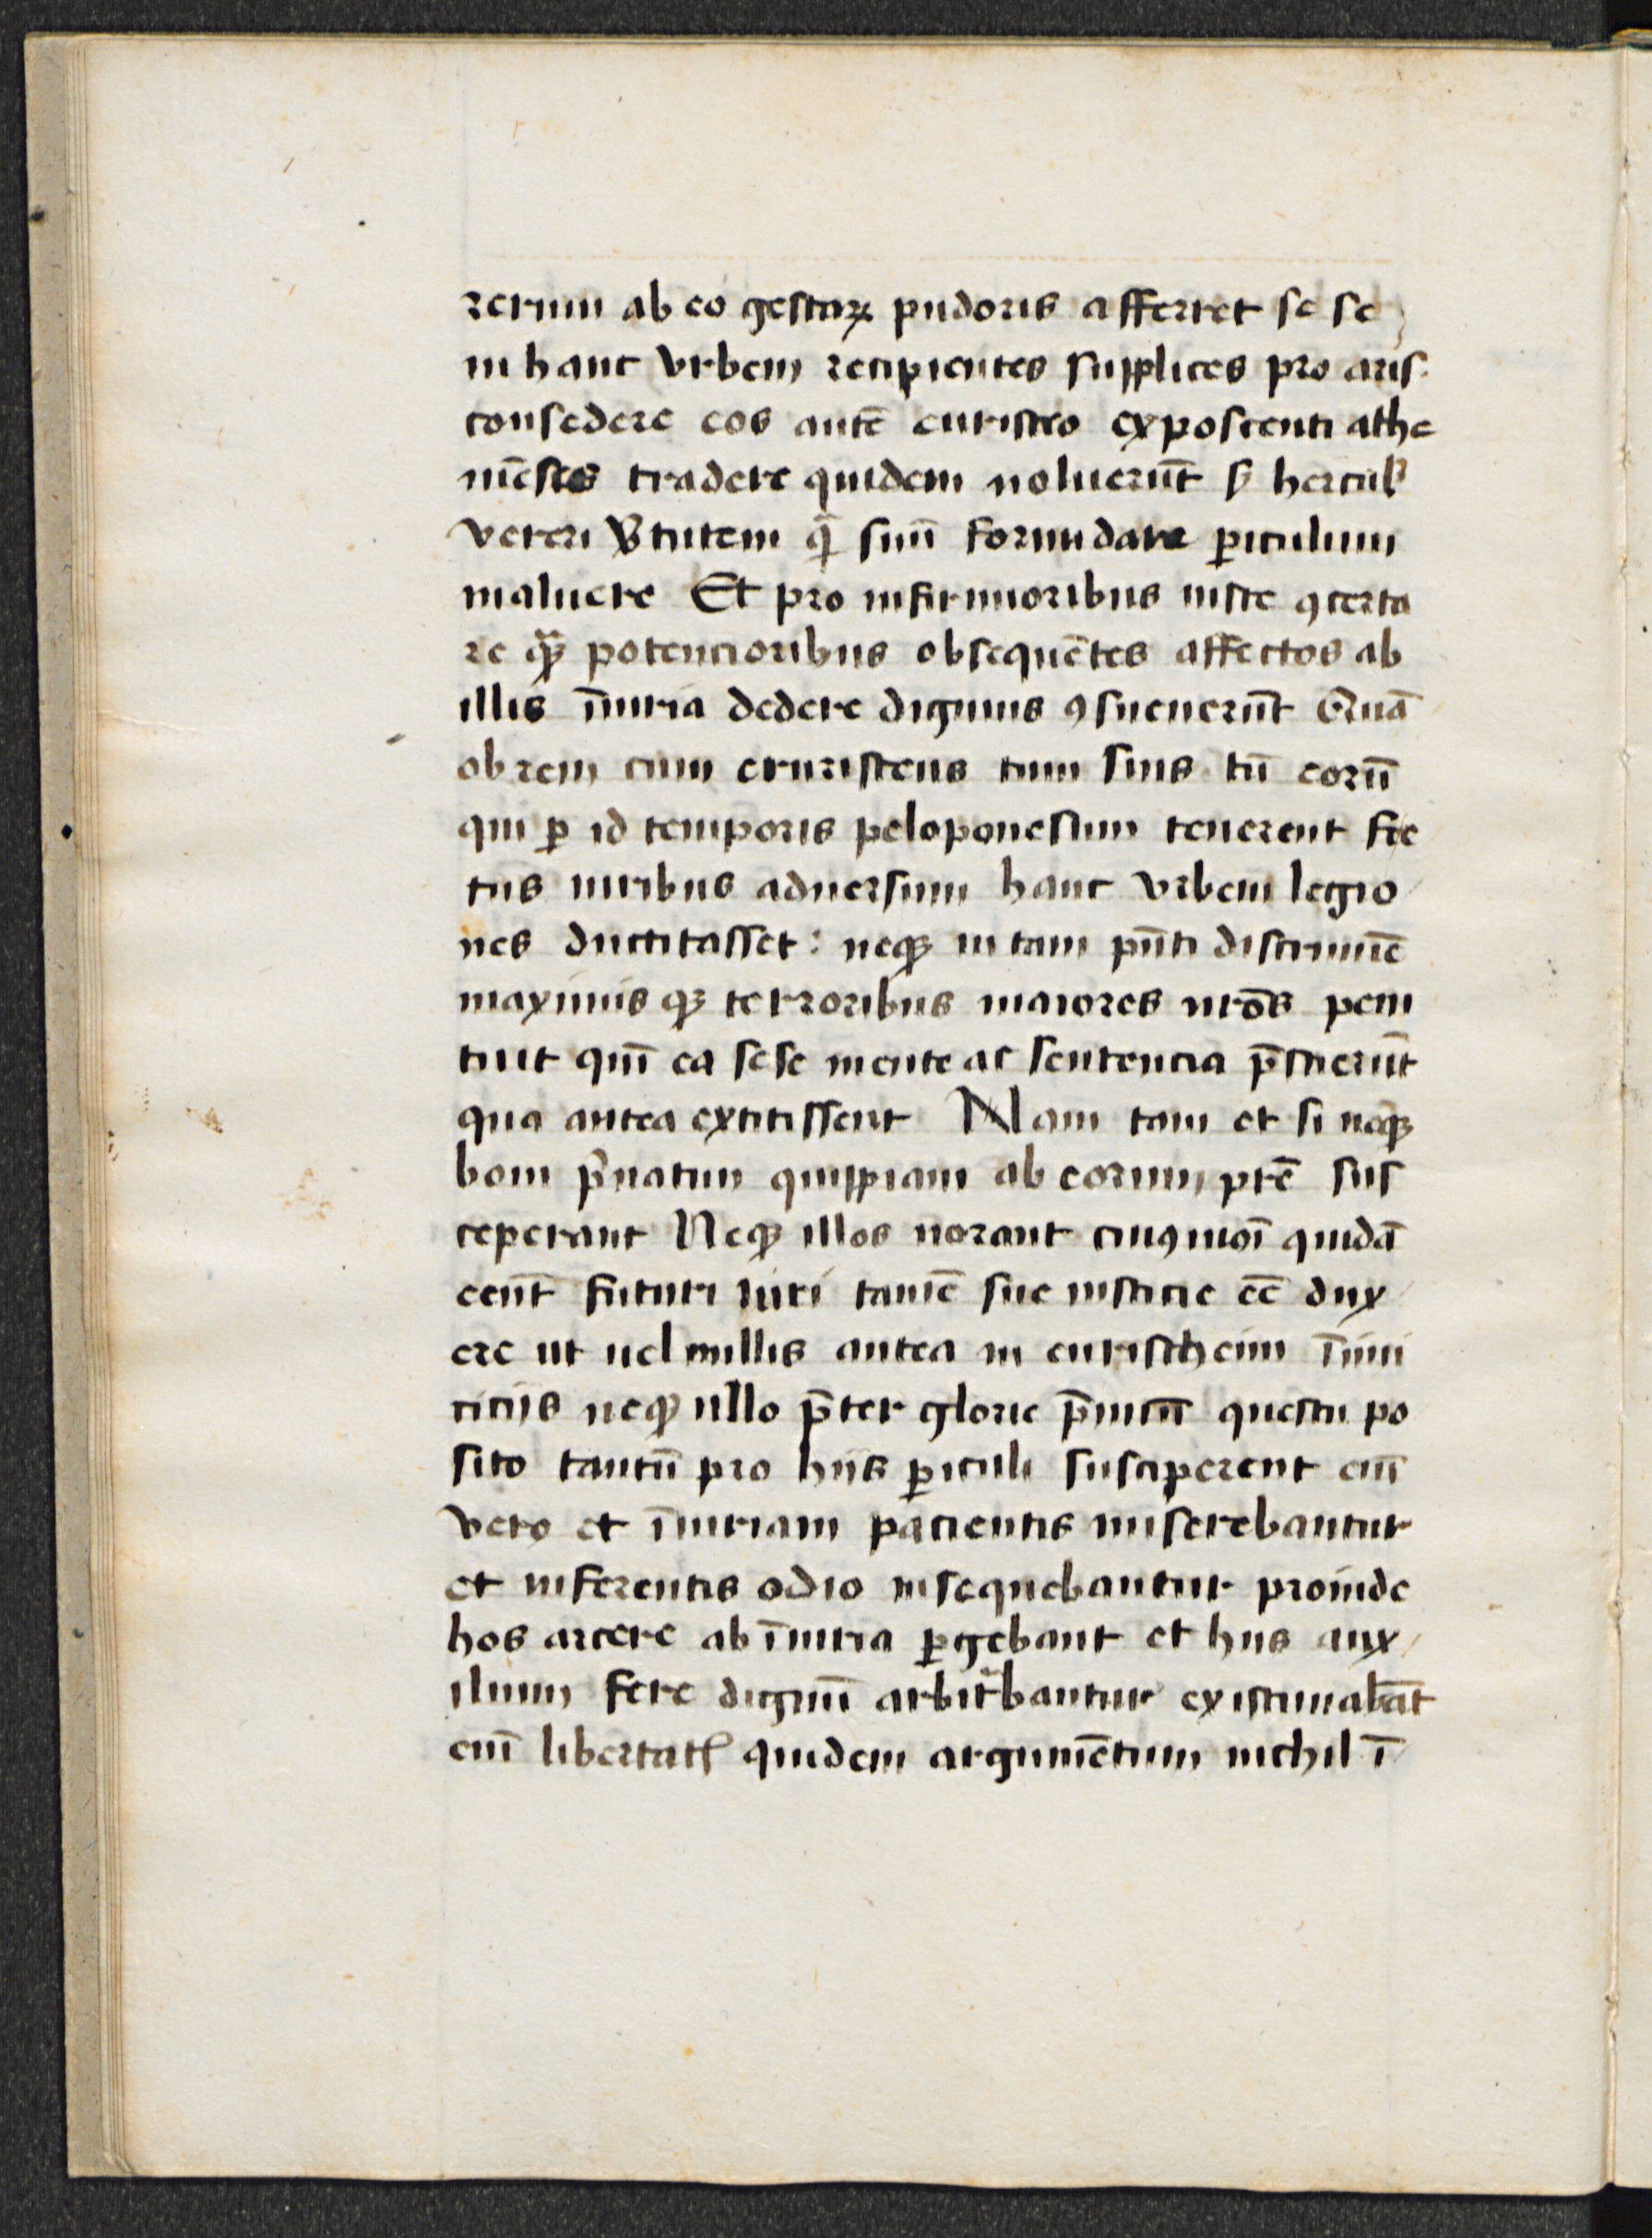 rerum ab eo gestaꝝ pudoris afferret se se
in hanc vrbem recipientes supplices pro aris
consedere eos autē euristeo exposcenti athe
niēses tradere quidem noluerūt sꝫ hercul᷒
vereri v̓tutem qͣ̄ suū formidare ꝑiculum
maluere Et pro infirmioribus iuste ꝯcerta
re qͣ̄ꝫ potencioribus obsequētes affectos ab
illis īiuria dedere dignius ꝯsueuerūt Quā
ob rem cum eruristeus tum suis tū eorū
qui ꝑ id temporis peloponesum tenerent fre
tus uiribus aduersum hanc vrbem legio
nes ductitasset: neqꝫ in tam pn̄ti discrimīe
maximis qꝫ terroribus maiores nr̄os peni
tuit quī ea sese mente ac sentencia p̄stuerūt
qua antea extitissent Nam tam et si neqꝫ
boni p̓uatim quippiam ab eorum pr̄e sus
ceperant Neqꝫ illos norant cuiꝰmōi quidā
eēnt futuri uiri tamē sue iusticie eē dux
ere ut uel nullis antea in euristheum īimi
ticijs neqꝫ ullo p̄ter glorie p̄miū questu po
sito tantū pro hijs ꝑiculi susciperent eiī
vero et īiuriam pacientis miserebantur
et inferentis odio insequebantur proinde
hos arcere ab īiuria ꝑgebant et hijs aux
ilium fere dignū arbitͣbantur existimabāt
eiī libertatꝭ quidem argumētum nichil ī